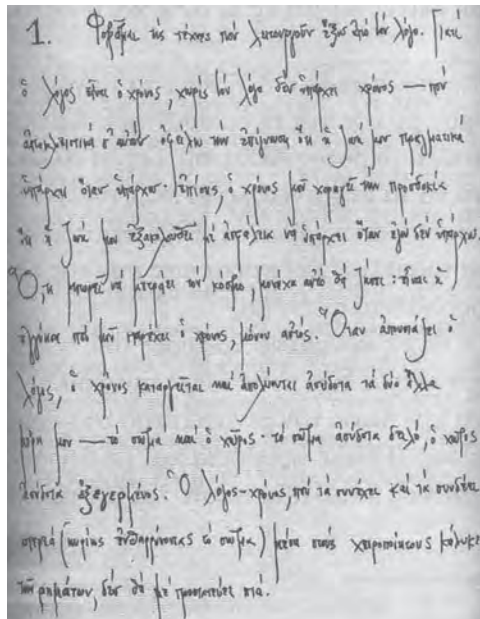 1. Φοβᾶμαι τίς τέχνες πού λειτουργοῦν ἔξω ἀπό τόν λόγο. Γιατί
ὁ λόγος εἶναι ὁ χρόνος, χωρίς τόν λόγο δέν ὑπάρχει χρόνος — πού
ἀποκλειστικά σ' αὐτόν ὀφείλω τήν ἐπίγνωση ὅτι ἡ ζωή μου πραγματικά
ὑπάρχει ὅταν ὑπάρχω· ἐπίσης, ὁ χρόνος μοῦ χορηγεῖ τήν προσδοκία
ὅτι ἡ ζωή μου ἐξακολουθεῖ μέ ἀσφάλεια νά ὑπάρχει ὅταν ἐγώ δέν ὑπάρχω.
Ὅ,τι μπορεῖ νά μετράει τόν κόσμο, μονάχα αὐτό θά ζήσει: εἶναι ἡ
ἐγγύηση πού μοῦ παρέχει ὁ χρόνος, μόνον αὐτός. Ὅταν ἀπουσιάζει ὁ
λόγος, ὁ χρόνος καταργεῖται καί ἀπολύονται ἀσύδοτα τά δύο ἄλλα
μέρη μου — τό σῶμα καί ὁ χῶρος· τό σῶμα ἀσύδοτα δειλό, ὁ χῶρος
ἀσύδοτα ἐξεγερμένος. Ὁ λόγος-χρόνος, πού τά συνέχει καί τά συνδέει
(κυρίως ἐνθαρρύνοντας τό σῶμα) μέσα στούς χειροποίητους κάλυκες
τῶν ρημάτων, δέν θά μέ προστατεύει πιά.